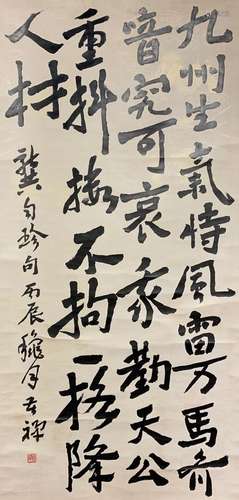 九州生氣恃風雷万馬齐
喑究可哀我勸天公
重抖擞不拘一格降
人材
龔自珍句丙辰穐月